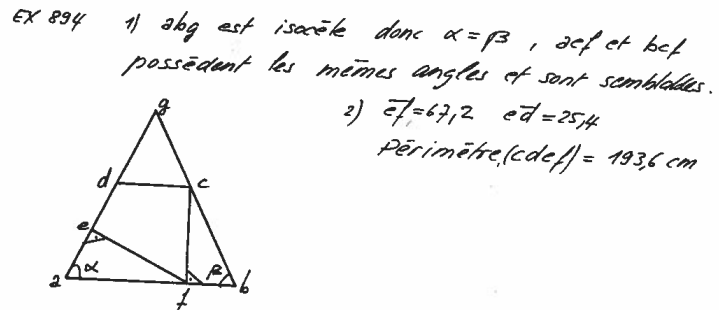 EX 894 1) abg est isocèle donc α = β , aef et bcf
possèdent les mêmes angles et sont semblables.
2) ef = 67,2 ed = 25,4
Périmètre (cdef) = 193,6 cm
g
d c
e
a α β b
f